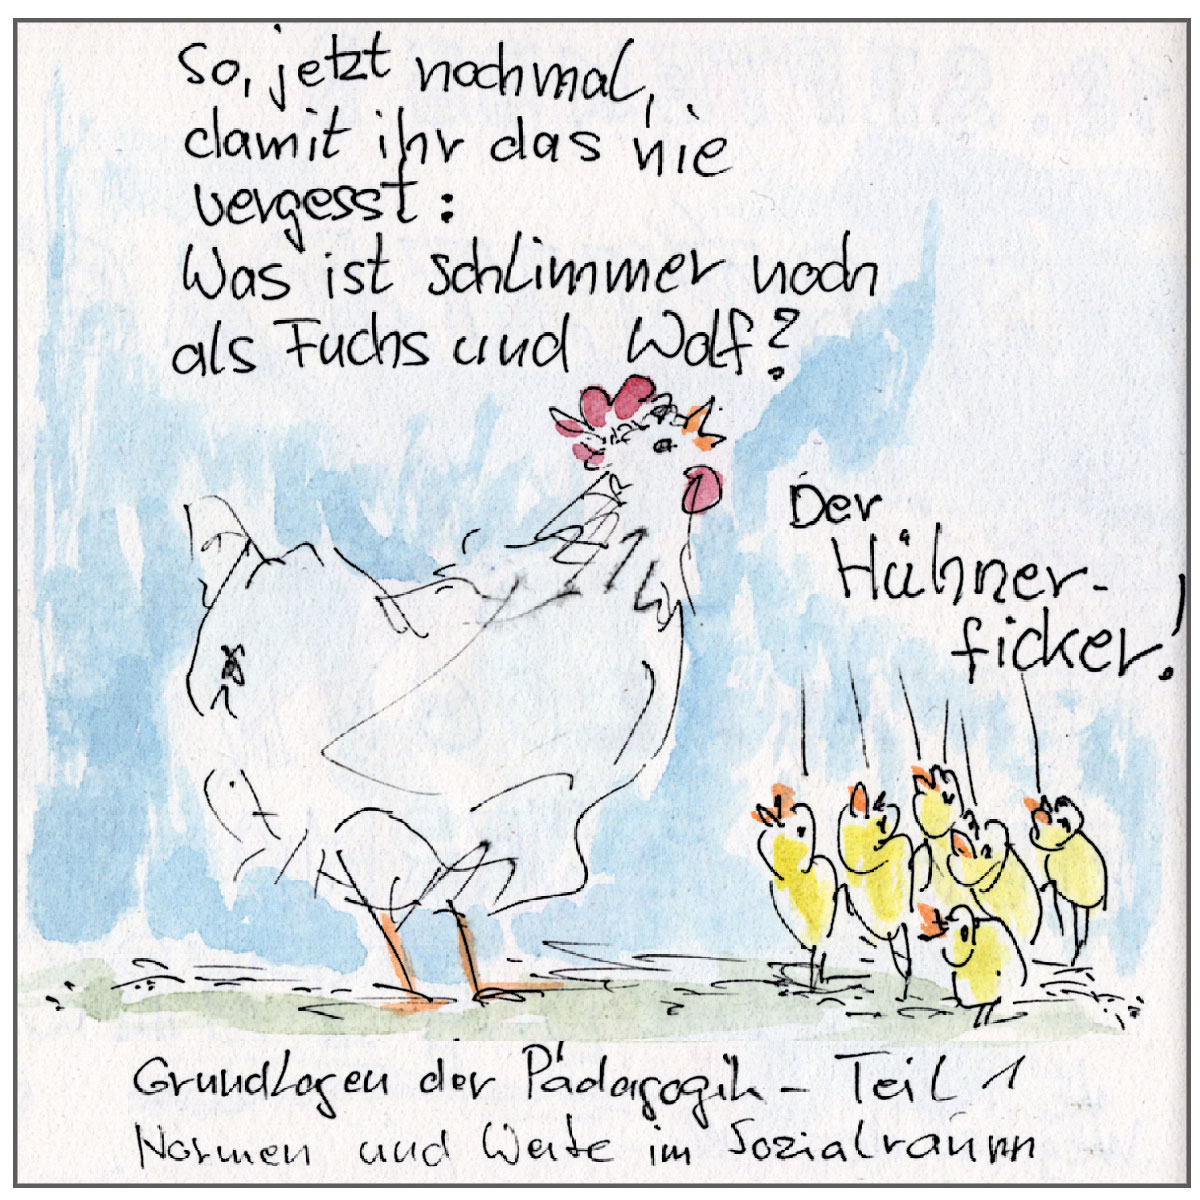 So, jetzt nochmal,
damit ihr das nie
vergesst:
Was ist schlimmer noch
als Fuchs und Wolf?
Der
Hühner-
ficker!
Grundlagen der Pädagogik – Teil 1
Normen und Werte im Sozialraum